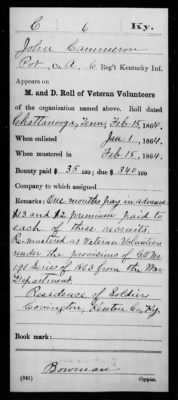 C 6 Ky.
John Cammeron
Pvt, Co. A, 6 Reg't Kentucky Inf.
Appears on
M. and D. Roll of Veteran Volunteers
of the organization named above. Roll dated
Chattanooga, Tenn, Feb 15, 1864.
When enlisted Jan 1, 1864.
When mustered in Feb 15, 1864.
Bounty paid $ 35/100; due $ 340/100
Company to which assigned
Remarks: One months pay in advance
$13 and $2 premium paid to
each of these recruits.
Re-mustered as Veteran Volunteers
under the provisions of G.O. No
191 Series of 1863 from the War
Department.
Residence of Soldier
Covington, Kenton Co, Ky.
Book mark:
Bowman
(341) Copyist.